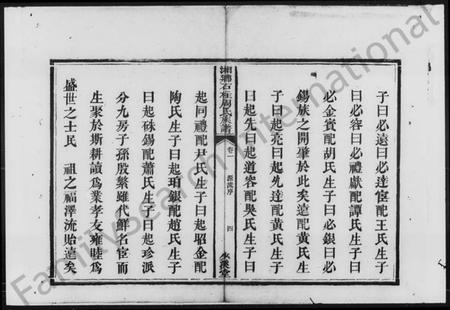 子曰必遠曰必達宦配王氏生子
曰必容曰必禮獻配譚氏生子曰
必金賓配胡氏生子曰必銀曰必
錫族之開肇於此矣遠配黃氏生
子曰起亮曰起先達配黃氏生子
曰起先曰起道容配吳氏生子曰
湘鄉石柱周氏家譜
卷一 源流序 四
起同禮配尹氏生子曰起昭金配
陶氏生子曰起珀銀配趙氏生子
曰起硃錫配蕭氏生子曰起珍派
分九房子孫殷繁雖代鮮名宦而
生聚於斯耕讀為業孝友雍睦為
盛世之士民 祖之福澤流貽遠矣
FamilySearch International